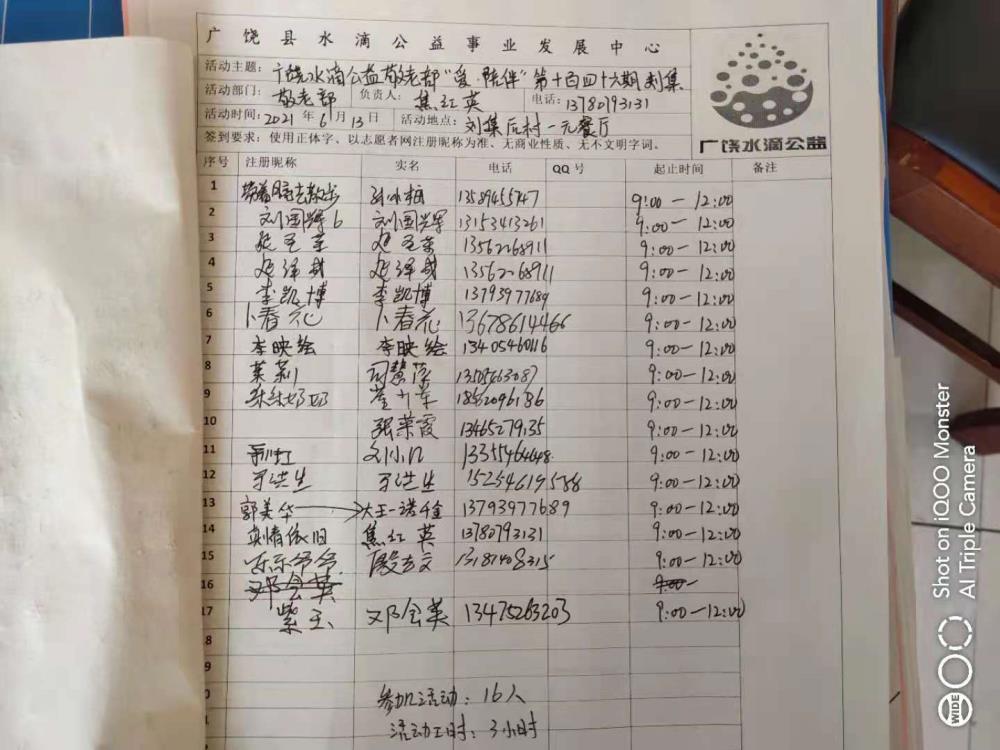 广饶县水滴公益事业发展中心
活动主题: 广饶水滴公益敬老部"爱·陪伴"第十百四十六期刘集
活动部门: 敬老部 负责人: 焦红英 电话: 13780793131
活动时间: 2021年6月13日 活动地点: 刘集后村一元餐厅
签到要求: 使用正体字、以志愿者网注册昵称为准、无商业性质、无不文明字词。
广饶水滴公益
序号 注册昵称 实名 电话 QQ号 起止时间 备注
1 9:00-12:00
2 刘国辉6 刘国辉 13153413261 9:00-12:00
3 13562268911 9:00-12:00
4 13562268911 9:00-12:00
5 李凯博 李凯博 13793977689 9:00-12:00
6 卜春花 卜春花 13678614466 9:00-12:00
7 李映绘 李映绘 13405460116 9:00-12:00
8 茉莉 司慧萍 13505463087 9:00-12:00
9 9:00-12:00
10 张荣霞 9:00-12:00
11 9:00-12:00
12 于洪生 于洪生 15254619588 9:00-12:00
13 郭美华 大王一诺千金 13793977689 9:00-12:00
14 真情依旧 焦红英 13780793131 9:00-12:00
15 乐乐爷爷 殷吉文 13181408315 9:00-12:00
16 邓会英 9:00-
17 紫玉 邓会英 13475263203 9:00-12:00
8
9
0
参加活动: 16人
活动工时: 3小时
Shot on iQOO Monster
AI Triple Camera
WIDE